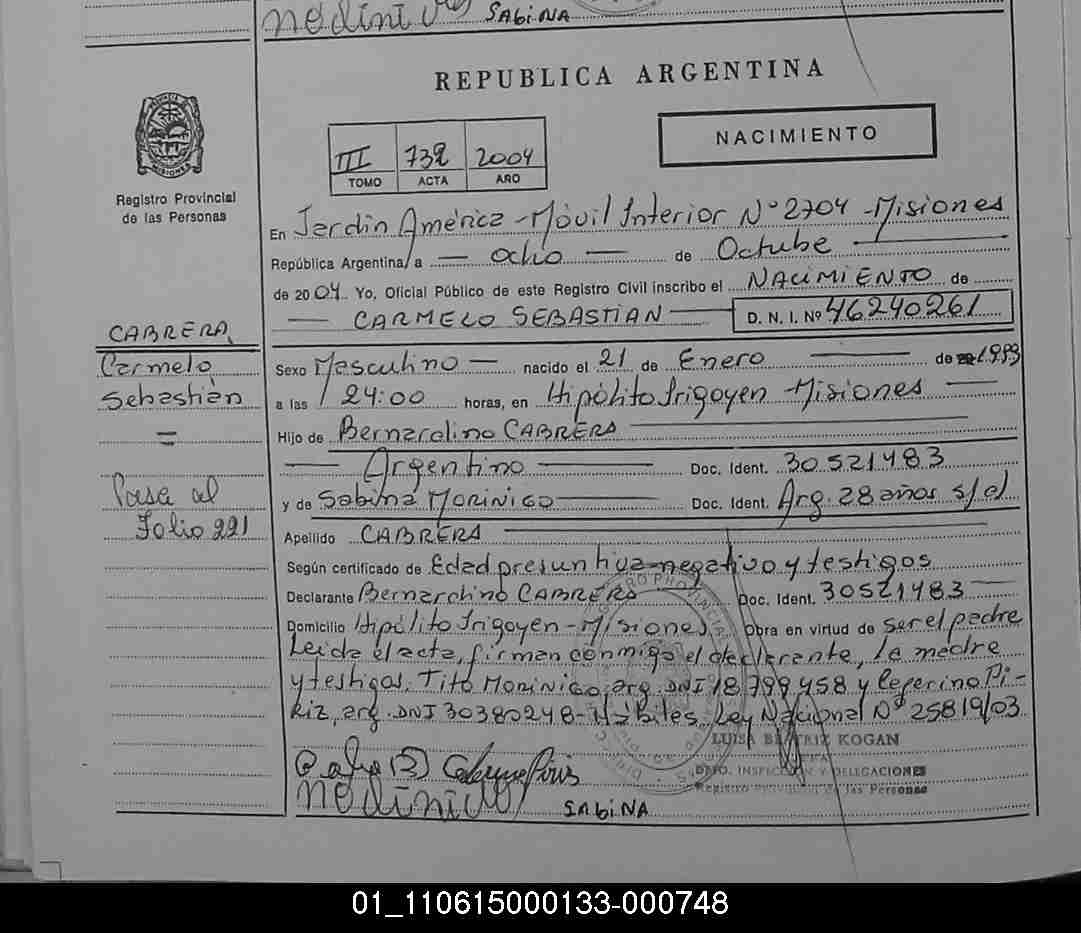 SABINA
REPUBLICA ARGENTINA
NACIMIENTO
III 732 2004
TOMO ACTA AÑO
Registro Provincial
de las Personas
En Jardín América - Móvil Interior N° 2704 - Misiones
República Argentina, a — ocho — de Octube —
de 2004. Yo, Oficial Público de este Registro Civil inscribo el NACIMIENTO de
— CARMELO SEBASTIAN — D. N. I. Nº 46240261
CABRERA
Carmelo
Sebastián
=
Pasa al
Folio 221
Sexo Masculino — nacido el 21 de Enero — de 1999
a las 24:00 horas, en Hipólito Irigoyen - Misiones —
Hijo de Bernardino CABRERA —
— Argentino — Doc. Ident. 30521483
y de Sabina MORINIGO — Doc. Ident. Arg. 28 años s/d
Apellido CABRERA —
Según certificado de Edad presuntiva-negativo y testigos
Declarante Bernardino CABRERA Doc. Ident. 30521483 —
Domicilio Hipólito Irigoyen - Misiones Obra en virtud de ser el padre
Leida el acta, firman conmigo el declarante, la madre
y testigos, Tito MORINIGO, arg. DNI 18799458 y Ceferino Pi-
riz, arg. DNI 30380248 - Hábiles. Ley Nacional N° 25819/03
LUISA BEATRIZ KOGAN
DPTO. INSPECCION Y DELEGACIONES
Registro Provincial de las Personas
SABINA
01_110615000133-000748